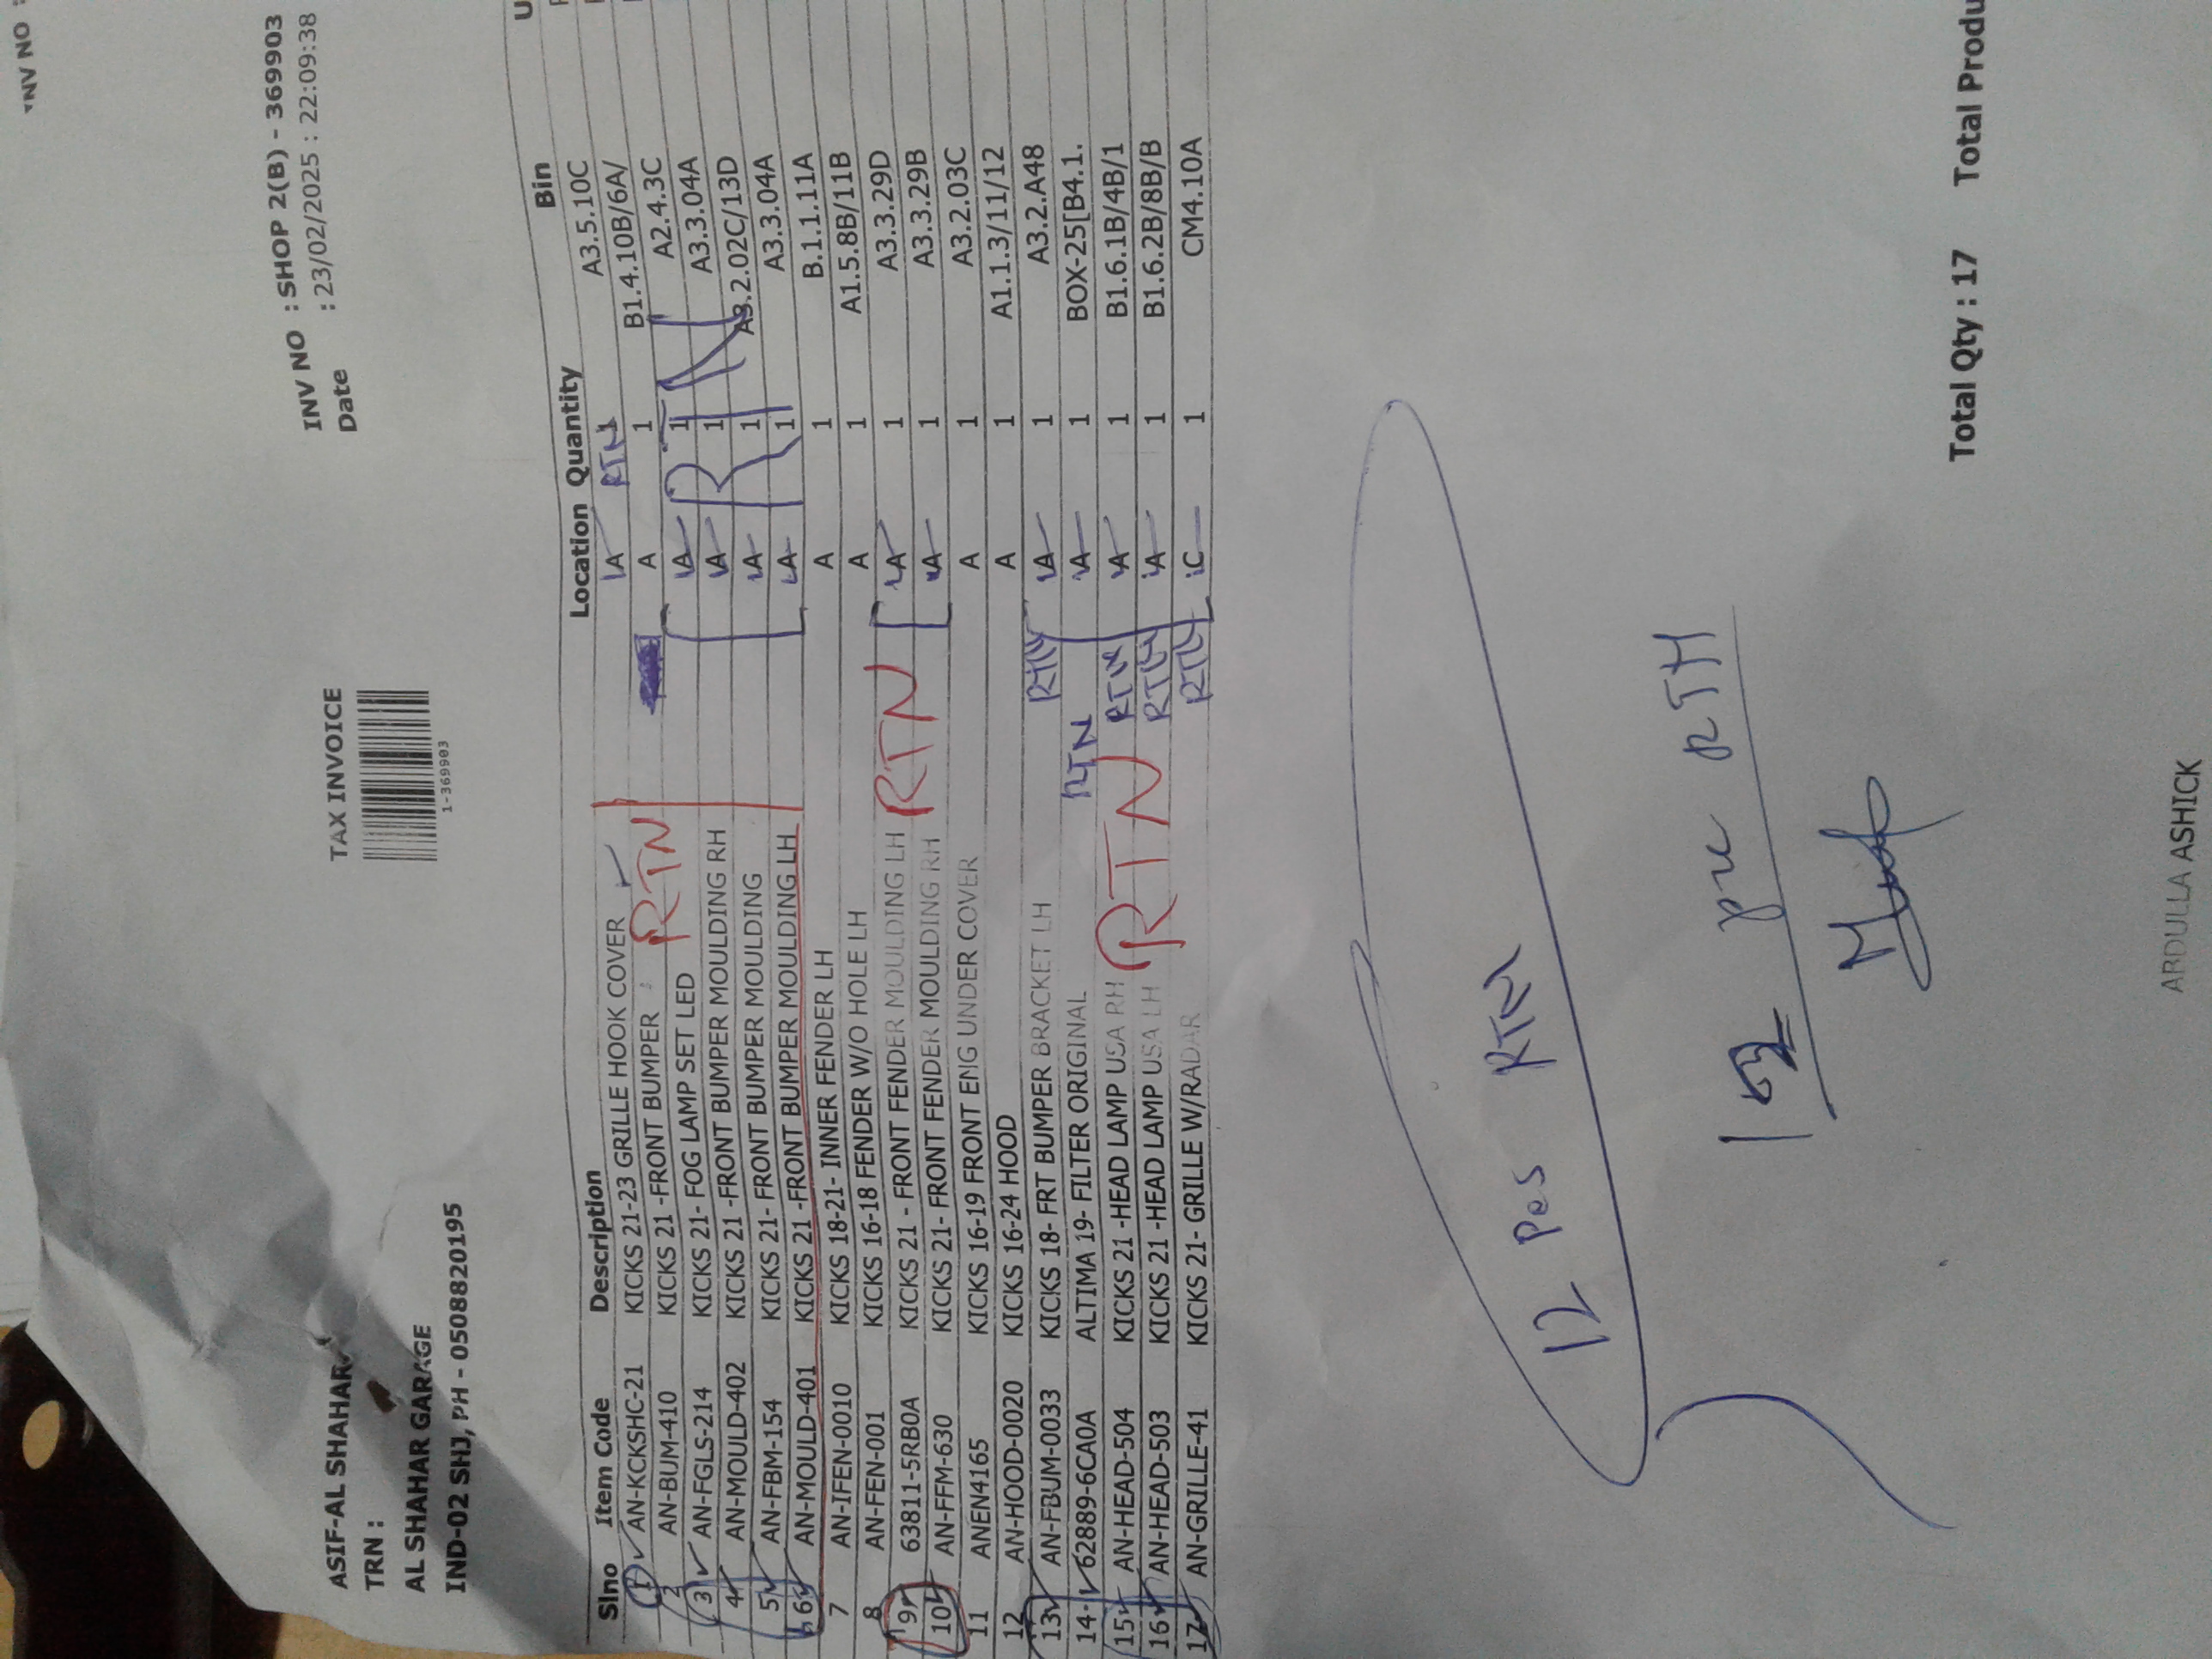 INV NO :
INV NO : SHOP 2(B) - 369903
Date : 23/02/2025 : 22:09:38
TAX INVOICE
1-369903
ASIF-AL SHAHAR
TRN :
AL SHAHAR GARAGE
IND-02 SHJ, PH - 0508820195
Slno Item Code Description Location Quantity Bin
1 AN-KCKSHC-21 KICKS 21-23 GRILLE HOOK COVER A RTN 1 A3.5.10C
2 AN-BUM-410 KICKS 21 -FRONT BUMPER A 1 B1.4.10B/6A/
RTN
3 AN-FGLS-214 KICKS 21- FOG LAMP SET LED A 1 A2.4.3C
4 AN-MOULD-402 KICKS 21 -FRONT BUMPER MOULDING RH A 1 A3.3.04A
RTN
5 AN-FBM-154 KICKS 21- FRONT BUMPER MOULDING A 1 A3.2.02C/13D
6 AN-MOULD-401 KICKS 21 -FRONT BUMPER MOULDING LH A 1 A3.3.04A
7 AN-IFEN-0010 KICKS 18-21- INNER FENDER LH A 1 B.1.1.11A
8 AN-FEN-001 KICKS 16-18 FENDER W/O HOLE LH A 1 A1.5.8B/11B
9 63811-5RB0A KICKS 21 - FRONT FENDER MOULDING LH A 1 A3.3.29D
RTN
10 AN-FFM-630 KICKS 21- FRONT FENDER MOULDING RH A 1 A3.3.29B
11 ANEN4165 KICKS 16-19 FRONT ENG UNDER COVER A 1 A3.2.03C
12 AN-HOOD-0020 KICKS 16-24 HOOD A 1 A1.1.3/11/12
13 AN-FBUM-0033 KICKS 18- FRT BUMPER BRACKET LH RTN A 1 A3.2.A48
14 62889-6CA0A ALTIMA 19- FILTER ORIGINAL RTN A 1 BOX-25[B4.1.
15 AN-HEAD-504 KICKS 21 -HEAD LAMP USA RH RTN A 1 B1.6.1B/4B/1
RTN
16 AN-HEAD-503 KICKS 21 -HEAD LAMP USA LH RTN A 1 B1.6.2B/8B/B
17 AN-GRILLE-41 KICKS 21- GRILLE W/RADAR RTN C 1 CM4.10A
12 Pcs RTN
12 RTN
Total Qty : 17 Total Produ
ABDULLA ASHICK